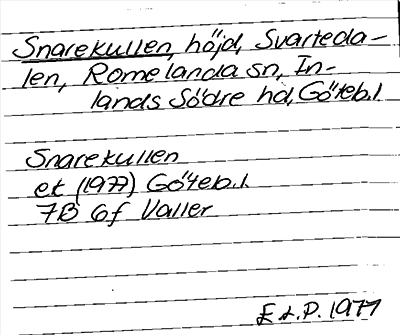 Snarekullen, höjd, Svarteda-
len, Romelanda sn, In-
lands Södre hd, Göteb.l.
Snarekullen
ek (1977) Göteb.l.
7B 6f Valler
E L.P. 1977